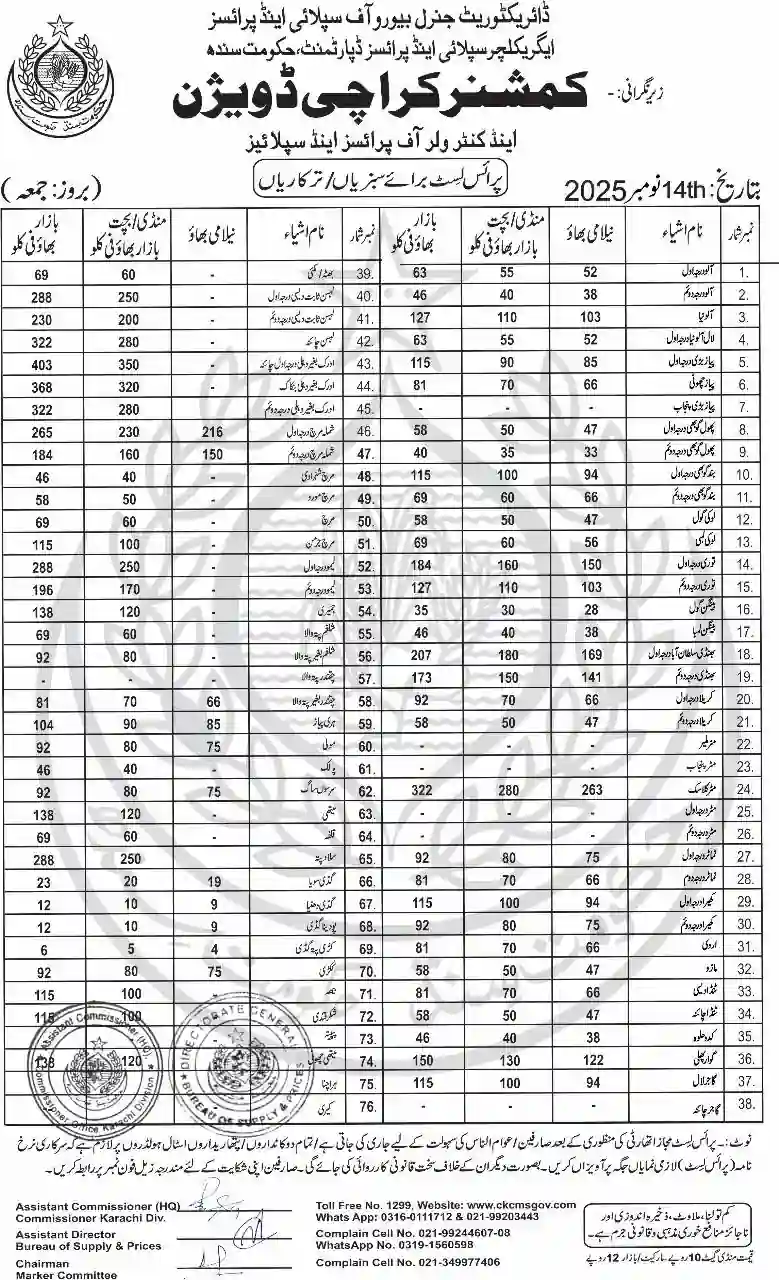 ڈائریکٹوریٹ جنرل بیورو آف سپلائی اینڈ پرائسز
ایگریکلچر سپلائی اینڈ پرائسز ڈپارٹمنٹ، حکومت سندھ
زیرنگرانی: - کمشنر کراچی ڈویژن
اینڈ کنٹرولر آف پرائسز اینڈ سپلائیز
بتاریخ: 14th نومبر 2025 پرائس لسٹ برائے سبزیاں/ترکاریاں (بروز: جمعہ)
نمبرشمار نام اشیاء نیلامی بھاؤ منڈی/بچت بازار بھاؤ فی کلو بازار بھاؤ فی کلو نمبرشمار نام اشیاء نیلامی بھاؤ منڈی/بچت بازار بھاؤ فی کلو بازار بھاؤ فی کلو
1. آلو درجہ اول 52 55 63 39. بھٹہ/مکئی - 60 69
2. آلو درجہ دوئم 38 40 46 40. لہسن ثابت دیسی درجہ اول - 250 288
3. آلو نیا 103 110 127 41. لہسن ثابت دیسی درجہ دوئم - 200 230
4. لال آلو نیا درجہ اول 52 55 63 42. لہسن چائنہ - 280 322
5. پیاز بڑی درجہ اول 85 90 115 43. ادرک بغیر دھلی درجہ اول چائنہ - 350 403
6. پیاز چھوٹی 66 70 81 44. ادرک بغیر دھلی بنکاک - 320 368
7. پیاز بڑی پنجاب - - - 45. ادرک بغیر دھلی درجہ دوئم - 280 322
8. پھول گوبھی درجہ اول 47 50 58 46. شملہ مرچ درجہ اول 216 230 265
9. پھول گوبھی درجہ دوئم 33 35 40 47. شملہ مرچ درجہ دوئم 150 160 184
10. بند گوبھی درجہ اول 94 100 115 48. مرچ شہزادی - 40 46
11. بند گوبھی درجہ دوئم 66 60 69 49. مرچ - 50 58
12. لوکی گول 47 50 58 50. مرچ - 60 69
13. لوکی لمبی 56 60 69 51. مرچ - 100 115
14. توری درجہ اول 150 160 184 52. لیمو درجہ اول - 250 288
15. توری درجہ دوئم 103 110 127 53. لیمو درجہ دوئم - 170 196
16. بینگن گول 28 30 35 54. - 120 138
17. بینگن لمبا 38 40 46 55. شلغم پتہ والا - 60 69
18. بھنڈی سلطان آباد درجہ اول 169 180 207 56. شلغم بغیر پتہ والا - 80 92
19. بھنڈی درجہ دوئم 141 150 173 57. چقندر پتہ والا - - -
20. کریلا درجہ اول 66 70 92 58. چقندر بغیر پتہ والا 66 70 81
21. کریلا درجہ دوئم 47 50 58 59. ہری پیاز 85 90 104
22. مٹر ملیر - - - 60. مولی 75 80 92
23. مٹر پنجاب - - - 61. پالک - 40 46
24. مٹر کلاسک 263 280 322 62. سرسوں ساگ 75 80 92
25. مٹر درجہ اول - - - 63. میتھی - 120 138
26. مٹر درجہ دوئم - - - 64. قلفہ - 60 69
27. ٹماٹر درجہ اول 75 80 92 65. سلاد پتہ - 250 288
28. ٹماٹر درجہ دوم 66 70 81 66. گڈی سویا 19 20 23
29. کھیرا درجہ اول 94 100 115 67. گڈی دھنیا 9 10 12
30. کھیرا درجہ دوئم 75 80 92 68. پودینا گڈی 9 10 12
31. اروی 66 70 81 69. کڑی پتہ گڈی 4 5 6
32. مارو 47 50 58 70. ککڑی 75 80 92
33. ٹنڈا دیسی 66 70 81 71. 100 115
34. ٹنڈا چائنہ 47 50 58 72. شکر قندی 100 115
35. کدو حلوہ 38 40 46 73.
36. گوار پھلی 122 130 150 74. میتھی چھوٹی 120 138
37. گاجر لال 94 100 115 75. ہرا چنا
38. گاجر چائنہ - - - 76. کیری
Assistant Commissioner (HQ)
Commissioner Office Karachi Division
DIRECTORATE GENERAL
BUREAU OF SUPPLY & PRICES
نوٹ: - پرائس لسٹ مجاز اتھارٹی کی منظوری کے بعد صارفین/عوام الناس کی سہولت کے لیے جاری کی جاتی ہے/تمام دوکانداروں/پتھاریداروں اسٹال ہولڈروں پر لازم ہے کہ سرکاری نرخ
نامہ (پرائس لسٹ) لازمی نمایاں جگہ پر آویزاں کریں۔ بصورت دیگر ان کے خلاف سخت قانونی کارروائی کی جائے گی۔ صارفین اپنی شکایت کے لئے مندرجہ زیل فون نمبر پر رابطہ کریں۔
Assistant Commissioner (HQ)
Commissioner Karachi Div.
Assistant Director
Bureau of Supply & Prices
Chairman
Marker Committee
Toll Free No. 1299, Website: www.ckcmsgov.com
Whats App: 0316-0111712 & 021-99203443
Complain Cell No. 021-99244607-08
WhatsApp No. 0319-1560598
Complain Cell No. 021-349977406
کم تولنا، ملاوٹ، ذخیرہ اندوزی اور
ناجائز منافع خوری مذہبی و قانونی جرم ہے۔
قیمت منڈی گیٹ 10 روپے مارکیٹ/بازار 12 روپے